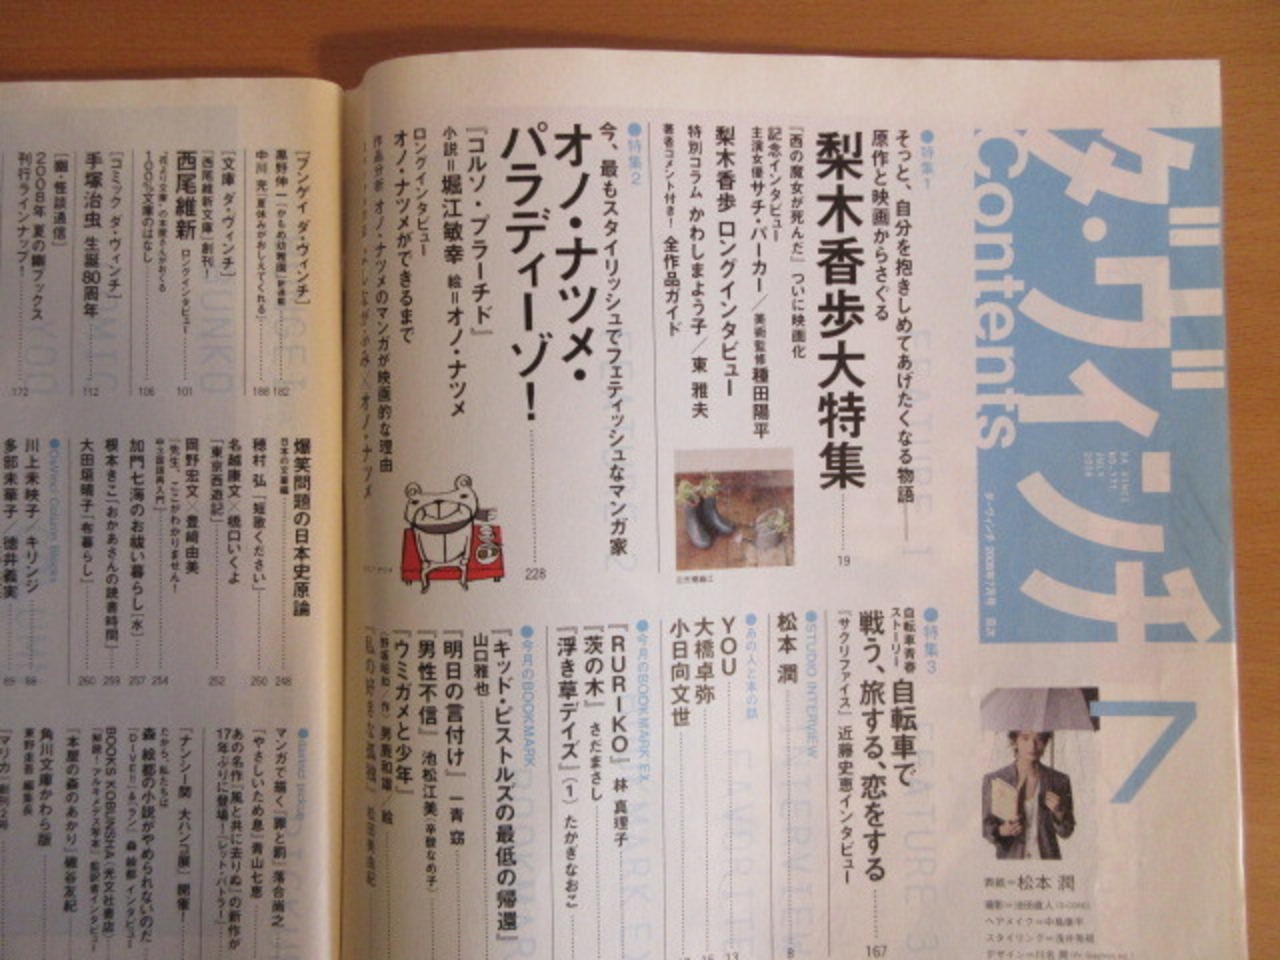 ダ・ヴィンチ
Contents
7
DA VINCI
NO.171
JULY
2008
表紙=松本 潤
●特集1
そっと、自分を抱きしめてあげたくなる物語——
原作と映画からさぐる
梨木香歩大特集
19
『西の魔女が死んだ』ついに映画化
記念インタビュー
主演女優サチ・パーカー／美術監修 種田陽平
梨木香歩 ロングインタビュー
特別コラム かわしまよう子／東 雅夫
著者コメント付き! 全作品ガイド
●特集2
今、最もスタイリッシュでフェティッシュなマンガ家
オノ・ナツメ・
パラディーゾ!
228
『コルソ・プラーチド』
小説=堀江敏幸 絵=オノ・ナツメ
ロングインタビュー
オノ・ナツメができるまで
作品分析 オノ・ナツメのマンガが映画的な理由
●特集3
自転車青春
ストーリー
自転車で
戦う、旅する、恋をする
167
『サクリファイス』近藤史恵インタビュー
●STUDIO INTERVIEW
松本 潤
8
●あの人と本の話
YOU
13
大橋卓弥
15
小日向文世
●今月のBOOKMARK EX
『RURIKO』 林 真理子
『茨の木』 さだまさし
『浮き草デイズ』(1) たかぎなおこ
●今月のBOOKMARK
『キッド・ピストルズの最低の帰還』
山口雅也
『明日の言付け』 一青 窈
『男性不信』 池松江美(辛酸なめ子)
『ウミガメと少年』
(野坂昭如／作) 男鹿和雄／絵
[ブンゲイ ダ・ヴィンチ]
黒野伸一
182
中川 充
188
[文庫 ダ・ヴィンチ]
「西尾維新文庫」創刊!
西尾維新 ロングインタビュー
101
100%文庫のはなし
106
[コミック ダ・ヴィンチ]
手塚治虫 生誕80周年
112
[幽・怪談通信]
2008年 夏の幽ブックス
刊行ラインナップ!
172
爆笑問題の日本史原論
日本の文豪編
248
穂村 弘「短歌ください」
250
名越康文×橋口いくよ
「東京西遊記」
252
岡野宏文×豊崎由美
「先生、ここがわかりません!
254
加門七海のお祓い暮らし[水]
257
根本きこ「おかあさんの読書時間」
259
大田垣晴子「布暮らし」
260
川上未映子／キリンジ
68
多部未華子／徳井義実
69
マンガで描く『罪と罰』落合尚之
『やさしいため息』青山七恵
あの名作『風と共に去りぬ』の新作が
17年ぶりに登場!『レット・バトラー』
「ナンシー関 大ハンコ展」開催!
たから、私たちは
森 絵都の小説がやめられないのだ
『DIVE!!』&『ラン』 森 絵都 インタビュー
BOOKS KOBUNSHA(光文社書店)
『本屋の森のあかり』磯谷友紀
角川文庫かわら版